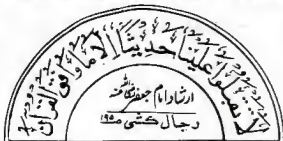 لا تقبلوا علينا حديثا الا ما وافق القران
ارشاد امام جعفر
رجال کشی ص۱۹۵